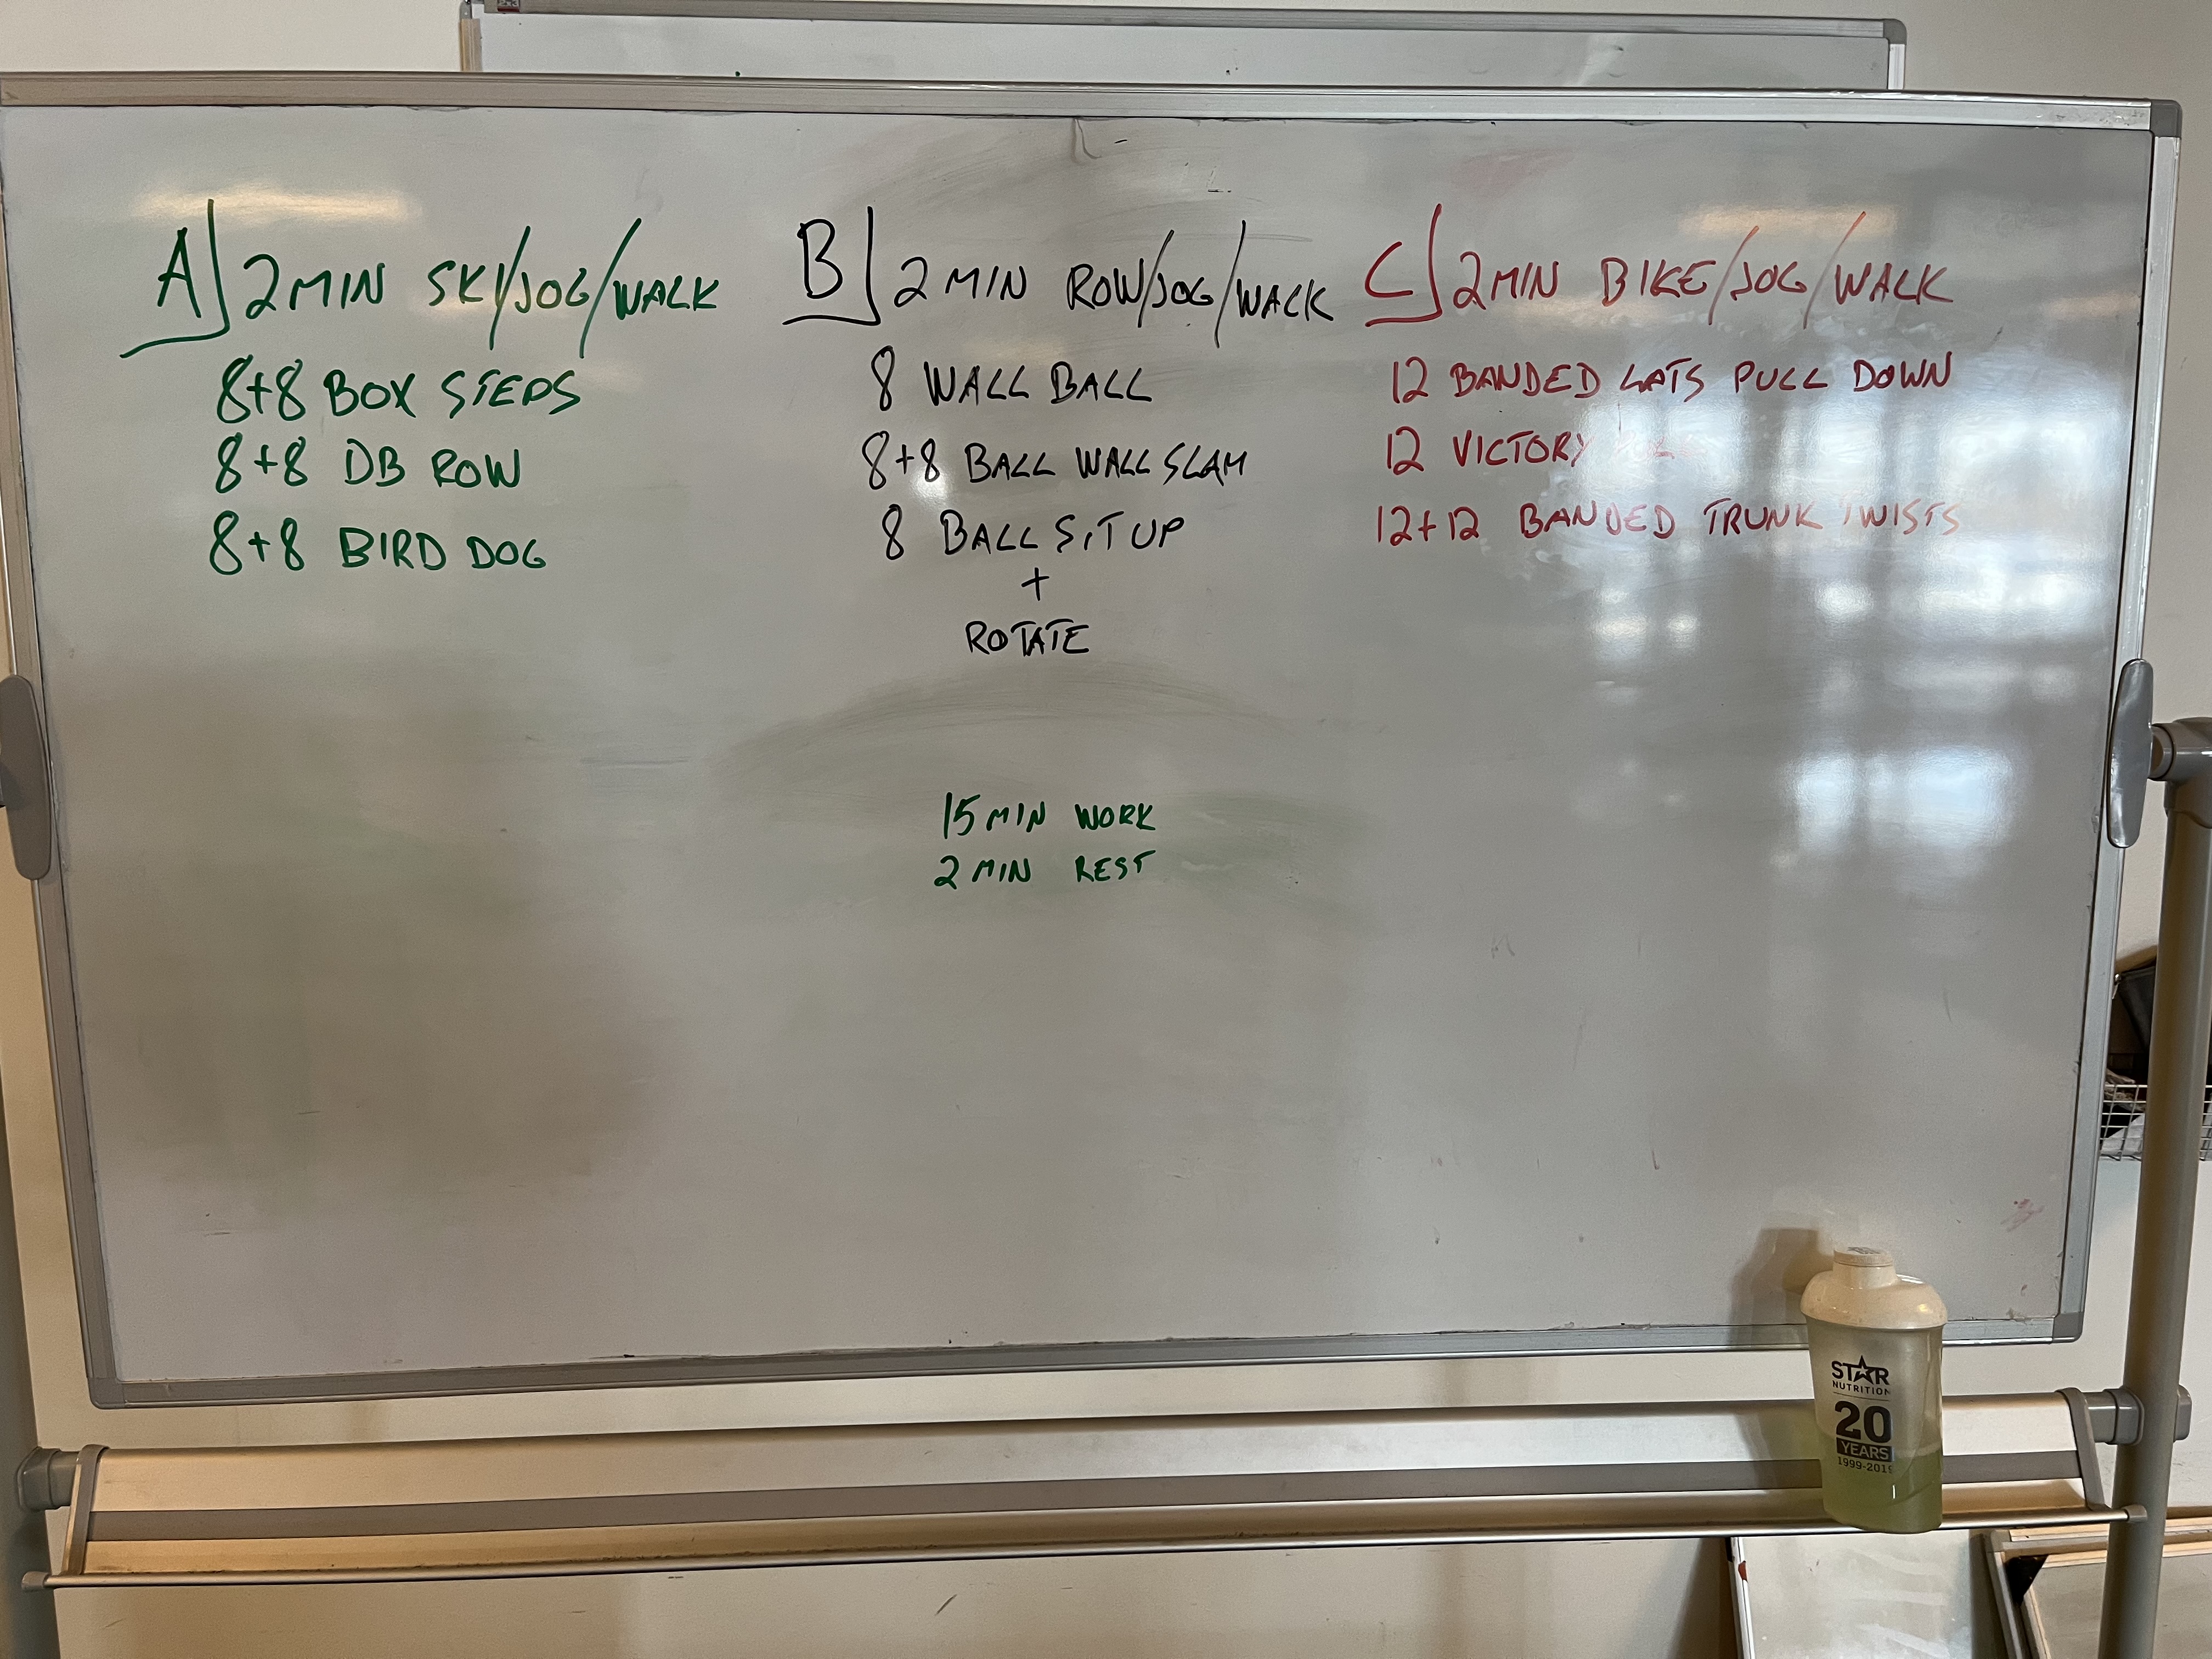 A 2 MIN SKI/JOG/WALK
8+8 BOX STEPS
8+8 DB ROW
8+8 BIRD DOG
B 2 MIN ROW/JOG/WALK
8 WALL BALL
8+8 BALL WALL SLAM
8 BALL SIT UP
+
ROTATE
C 2 MIN BIKE/JOG/WALK
12 BANDED LATS PULL DOWN
12 VICTORY
12+12 BANDED TRUNK TWISTS
15 MIN WORK
2 MIN REST
STAR
NUTRITION
20
YEARS
1999-2019